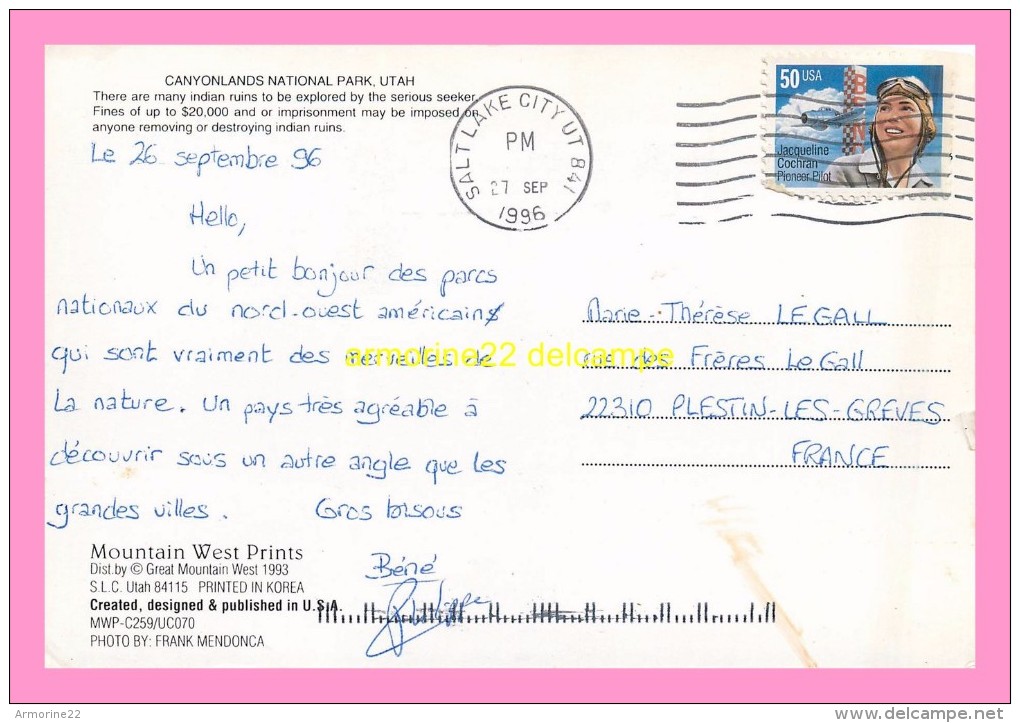 CANYONLANDS NATIONAL PARK, UTAH
There are many indian ruins to be explored by the serious seeker.
Fines of up to $20,000 and or imprisonment may be imposed on
anyone removing or destroying indian ruins.
Le 26 septembre 96
Hello,
Un petit bonjour des parcs
nationaux du nord-ouest américain
qui sont vraiment des merveilles de
la nature. Un pays très agréable à
découvrir sous un autre angle que les
grandes villes. Gros bisous
Béné
Philippe
Mountain West Prints
Dist.by © Great Mountain West 1993
S.L.C. Utah 84115 PRINTED IN KOREA
Created, designed & published in U.S.A.
MWP-C259/UC070
PHOTO BY: FRANK MENDONCA
SALT LAKE CITY UT 841
PM
27 SEP
1996
50 USA
BEN
Jacqueline
Cochran
Pioneer Pilot
Marie-Thérèse LE GALL
rue des Frères Le Gall
22310 PLESTIN-LES-GREVES
FRANCE
armorine22 delcampe
Armorine22
http://www.delcampe.net